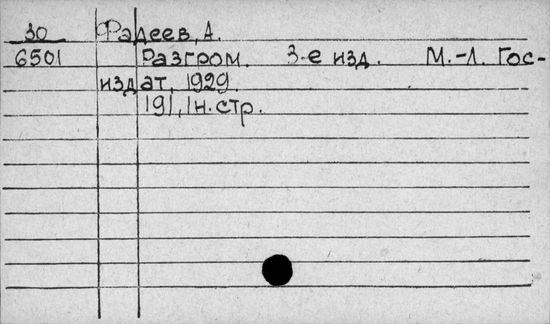 30 Фадеев, А.
6501 Разгром. 3-е изд. М.-Л. Гос-
издат, 1929.
191, 1н. стр.